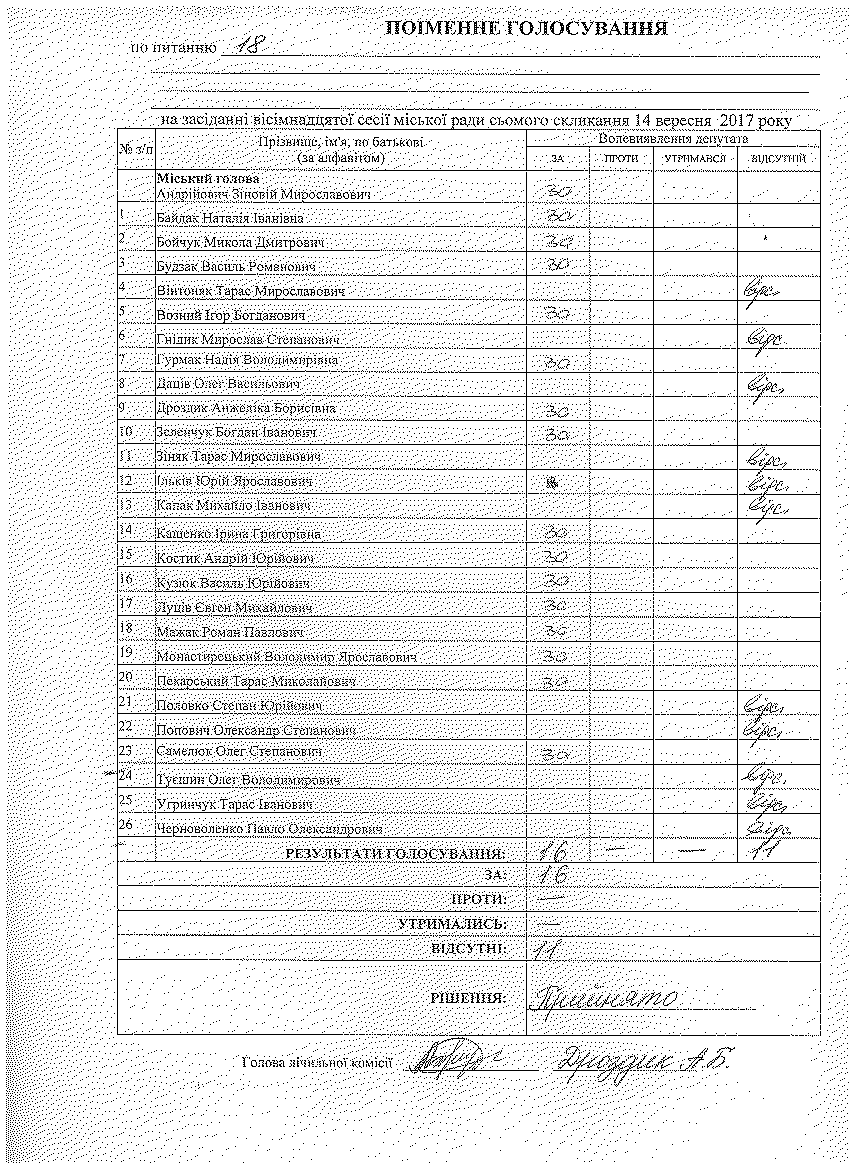 ПОІМЕННЕ ГОЛОСУВАННЯ
по питанню 18
на засіданні вісімнадцятої сесії міської ради сьомого скликання 14 вересня 2017 року
№ з/п Прізвище, ім'я, по батькові (за алфавітом) Волевиявлення депутата
ЗА ПРОТИ УТРИМАВСЯ ВІДСУТНІЙ
Міський голова
Андрійович Зіновій Мирославович зо
1 Байдак Наталія Іванівна зо
2 Бойчук Микола Дмитрович зо
3 Будзак Василь Романович зо
4 Вінтоняк Тарас Мирославович відс.
5 Возний Ігор Богданович зо
6 Гнідик Мирослав Степанович відс.
7 Гурмак Надія Володимирівна зо
8 Даців Олег Васильович відс.
9 Дроздик Анжеліка Борисівна зо
10 Зеленчук Богдан Іванович зо
11 Зіняк Тарас Мирославович відс.
12 Ільків Юрій Ярославович відс.
13 Капак Михайло Іванович відс.
14 Кащенко Ірина Григорівна зо
15 Костик Андрій Юрійович зо
16 Кузюк Василь Юрійович зо
17 Луців Євген Михайлович зо
18 Мажак Роман Павлович зо
19 Монастирецький Володимир Ярославович зо
20 Пекарський Тарас Миколайович зо
21 Половко Степан Юрійович відс.
22 Попович Олександр Степанович відс.
23 Самелюк Олег Степанович зо
24 Туєшин Олег Володимирович відс.
25 Угринчук Тарас Іванович відс.
26 Черноволенко Павло Олександрович відс.
РЕЗУЛЬТАТИ ГОЛОСУВАННЯ: 16 — — 11
ЗА: 16
ПРОТИ: —
УТРИМАЛИСЬ: —
ВІДСУТНІ: 11
РІШЕННЯ: Прийнято
Голова лічильної комісії Дроздик А.Б.